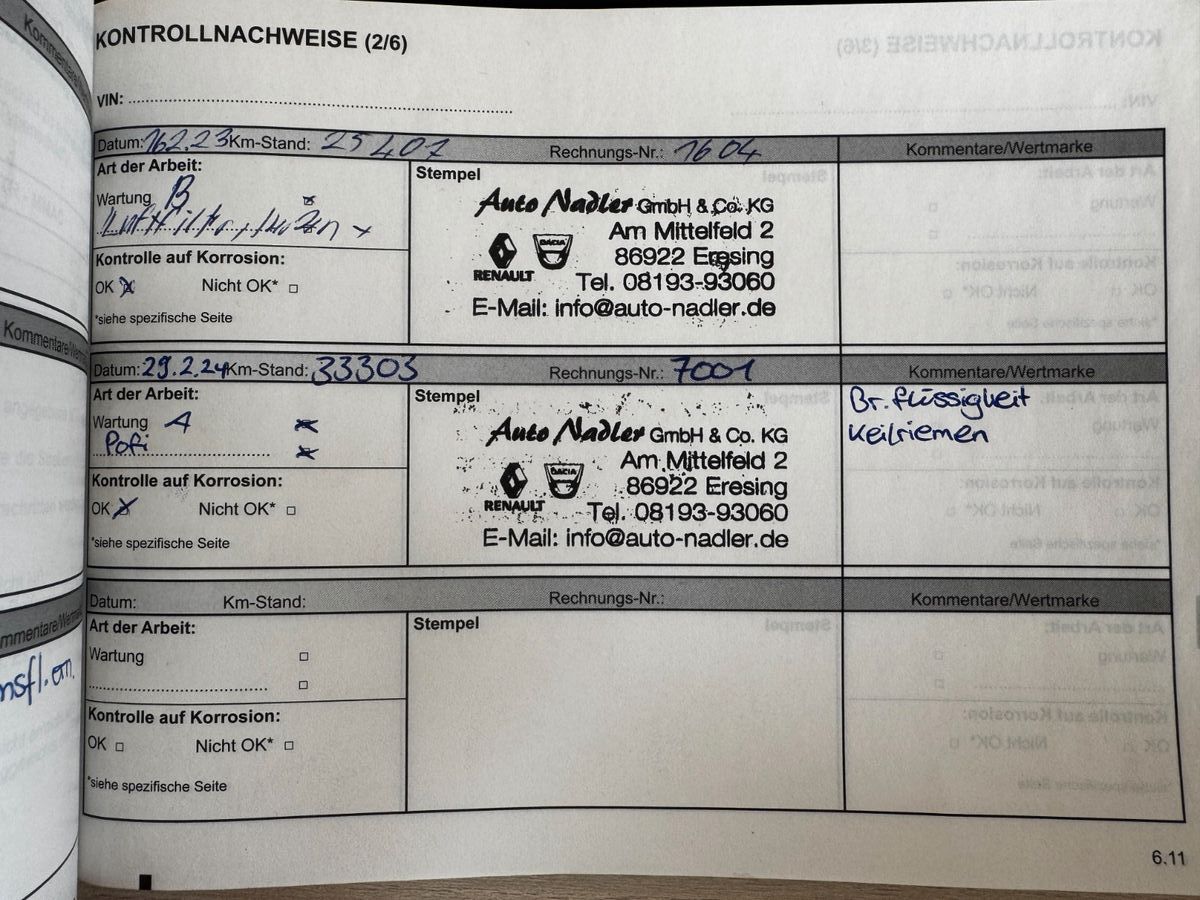 KONTROLLNACHWEISE (2/6)
VIN:
Datum: 16.2.23 Km-Stand: 25401 Rechnungs-Nr.: 1604 Kommentare/Wertmarke
Art der Arbeit:
Wartung B
Luftfilter,
Kontrolle auf Korrosion:
OK Nicht OK*
*siehe spezifische Seite
Stempel
Auto Nadler GmbH & Co. KG
Am Mittelfeld 2
86922 Eresing
RENAULT DACIA
Tel. 08193-93060
E-Mail: info@auto-nadler.de
Datum: 29.2.24 Km-Stand: 33303 Rechnungs-Nr.: 7001 Kommentare/Wertmarke
Art der Arbeit:
Wartung A
Pofi
Kontrolle auf Korrosion:
OK Nicht OK*
*siehe spezifische Seite
Stempel
Auto Nadler GmbH & Co. KG
Am Mittelfeld 2
86922 Eresing
RENAULT DACIA
Tel. 08193-93060
E-Mail: info@auto-nadler.de
Br.flüssigkeit
Keilriemen
Datum: Km-Stand: Rechnungs-Nr.: Kommentare/Wertmarke
Art der Arbeit:
Wartung
Kontrolle auf Korrosion:
OK Nicht OK*
*siehe spezifische Seite
Stempel
6.11